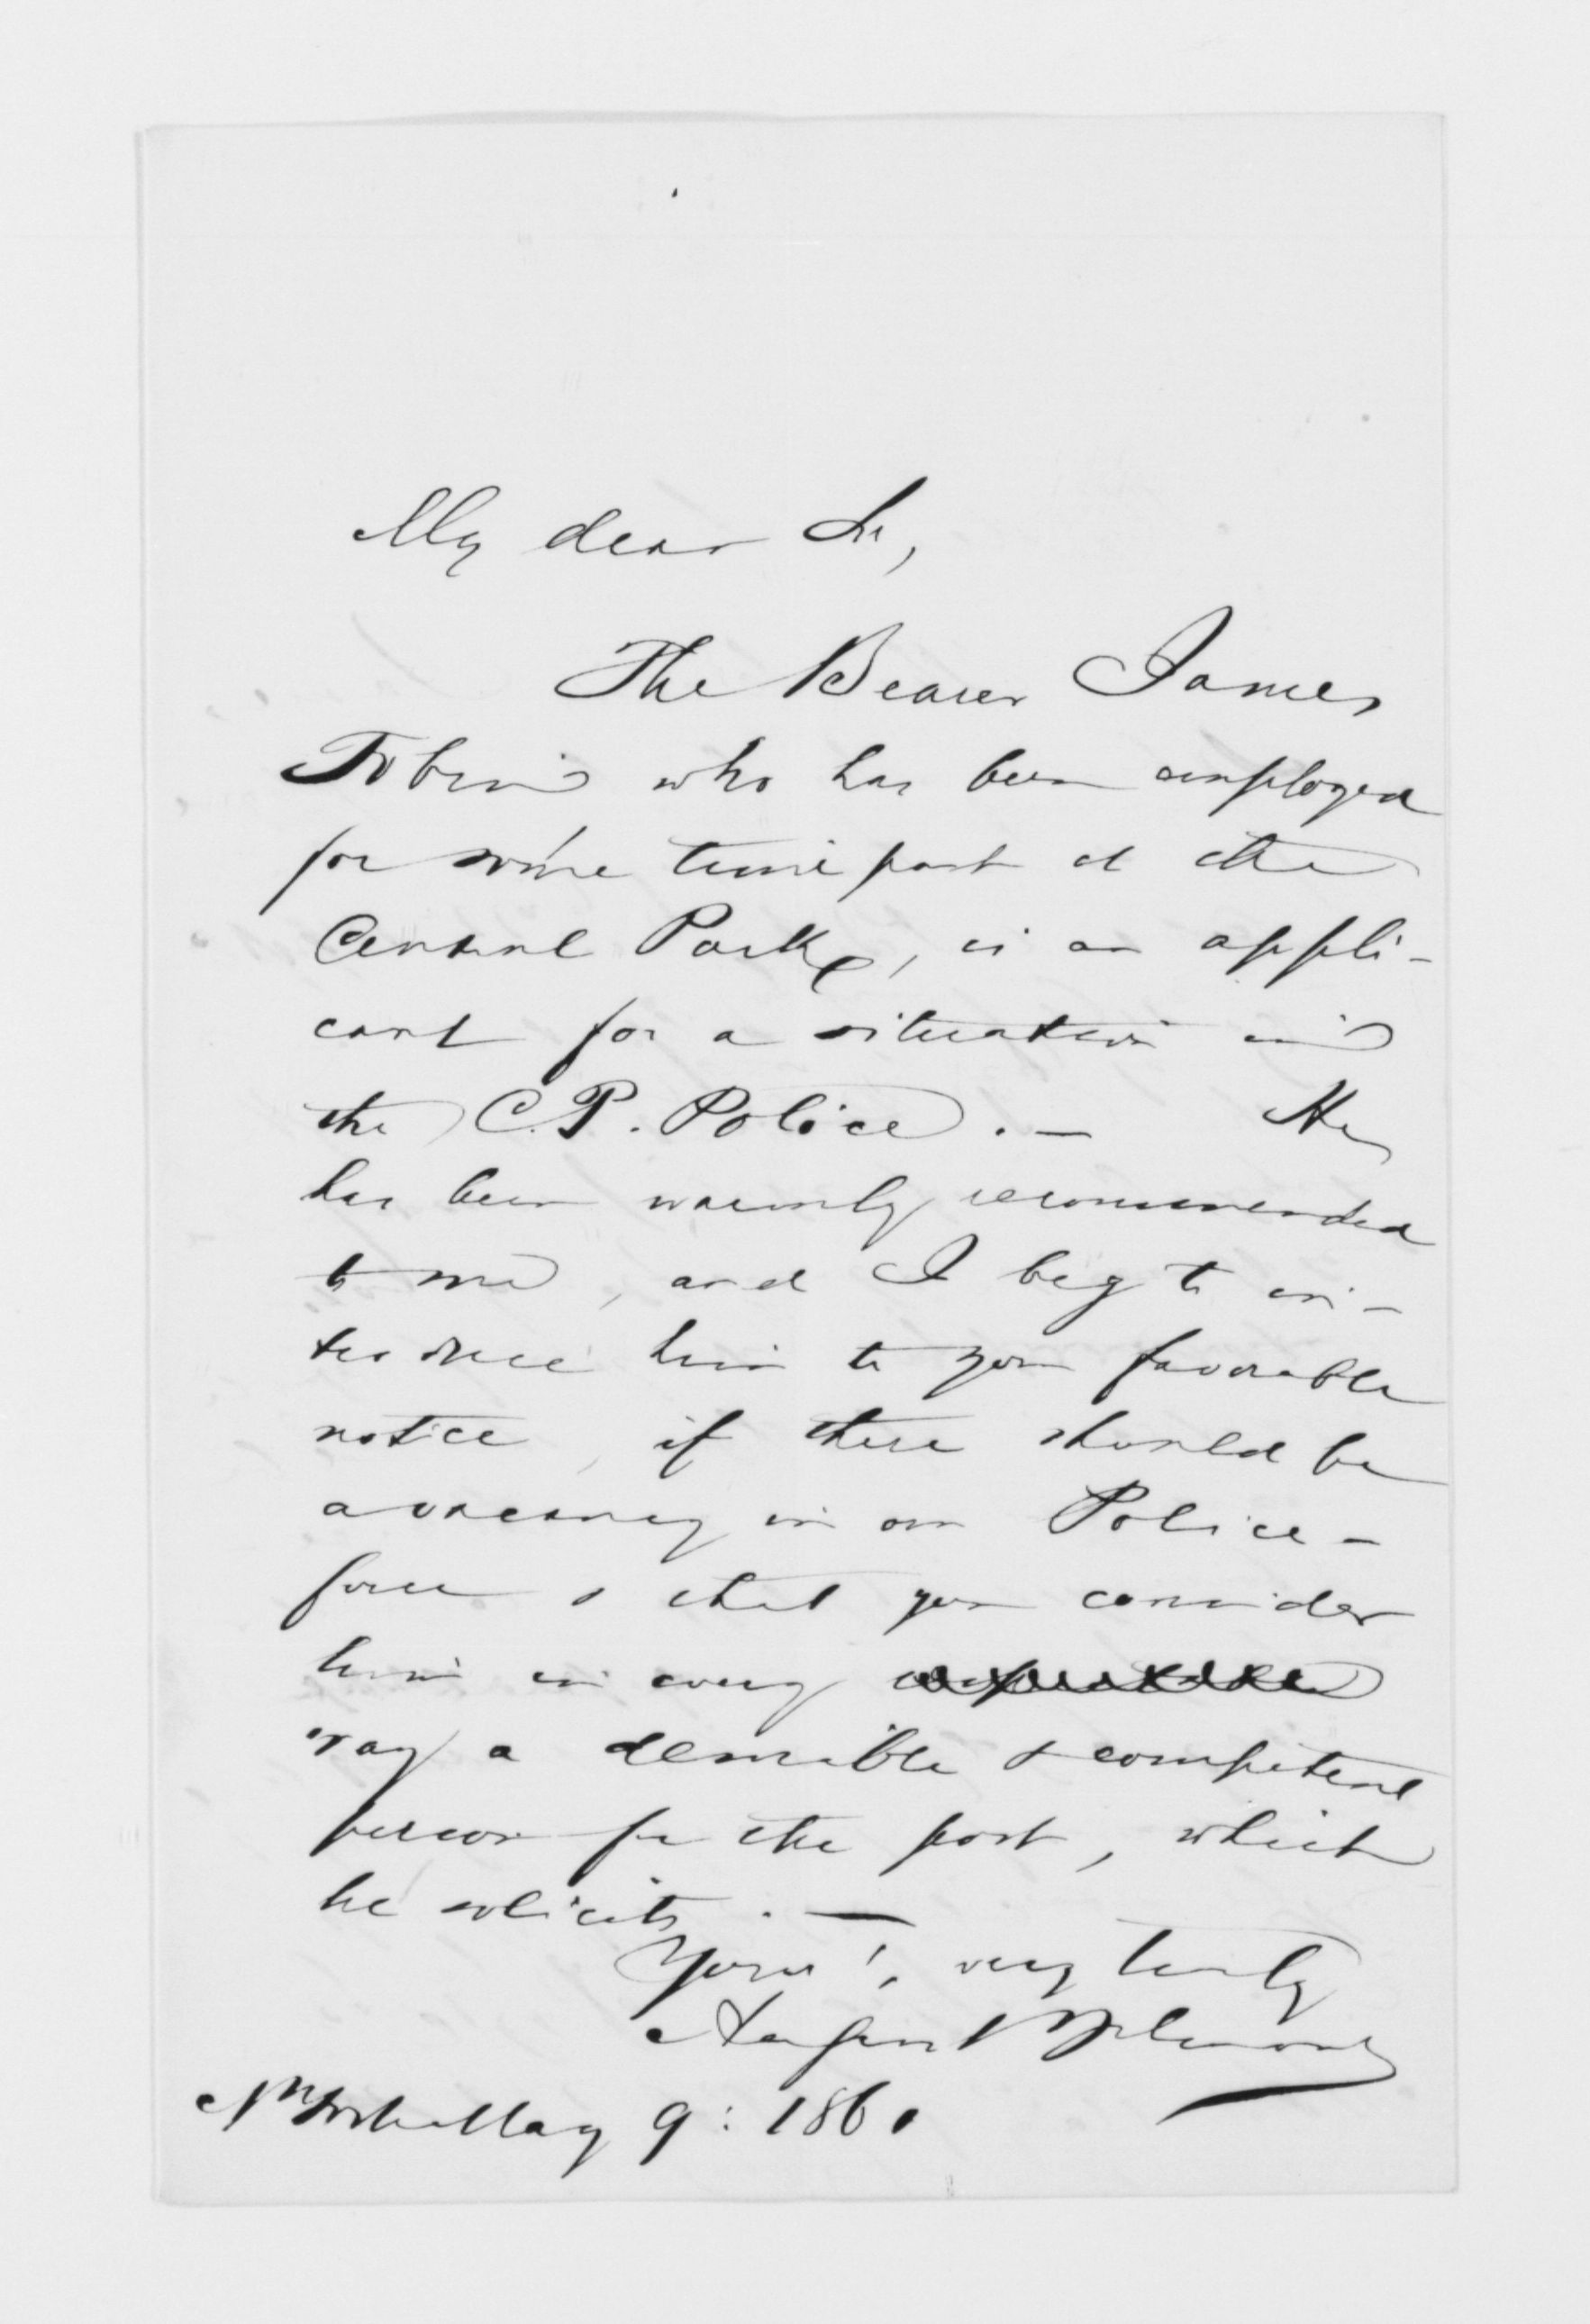 My dear Sir,
The Bearer James
Tobin who has been employed
for some time past at the
Central Park, is an appli-
cant for a situation in
the C.P. Police. — He
has been warmly recommended
to me, and I beg to in-
troduce him to your favorable
notice, if there should be
a vacancy in our Police-
force & that you consider
him in every
way a desirable & competent
person for the post, which
he solicits. —
Yours, very truly
August Belmont
N York May 9: 1860